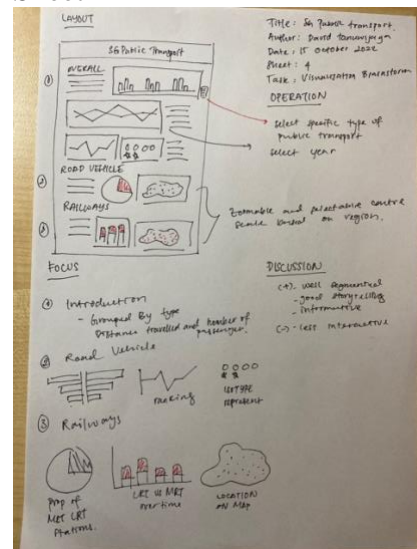 LAYOUT
SG Public Transport
① OVERALL
② ROAD VEHICLE
③ RAILWAYS
Title : SG Public transport.
Author : David
Date : 15 October 2022
Sheet : 4
Task : Visualisation Brainstorm
OPERATION
select specific type of
public transport
select year
zoomable and selectable
scale based on region.
FOCUS
① Introduction
- Grouped By type
Distance travelled and number of
passenger.
② Road Vehicle
ranking
ISOTYPE
represent
③ Railways
Prop of
MRT LRT
Stations.
LRT vs MRT
over time
LOCATION
ON MAP
DISCUSSION
(+). well segmented
- good storytelling
- informative
(-) - less interactive